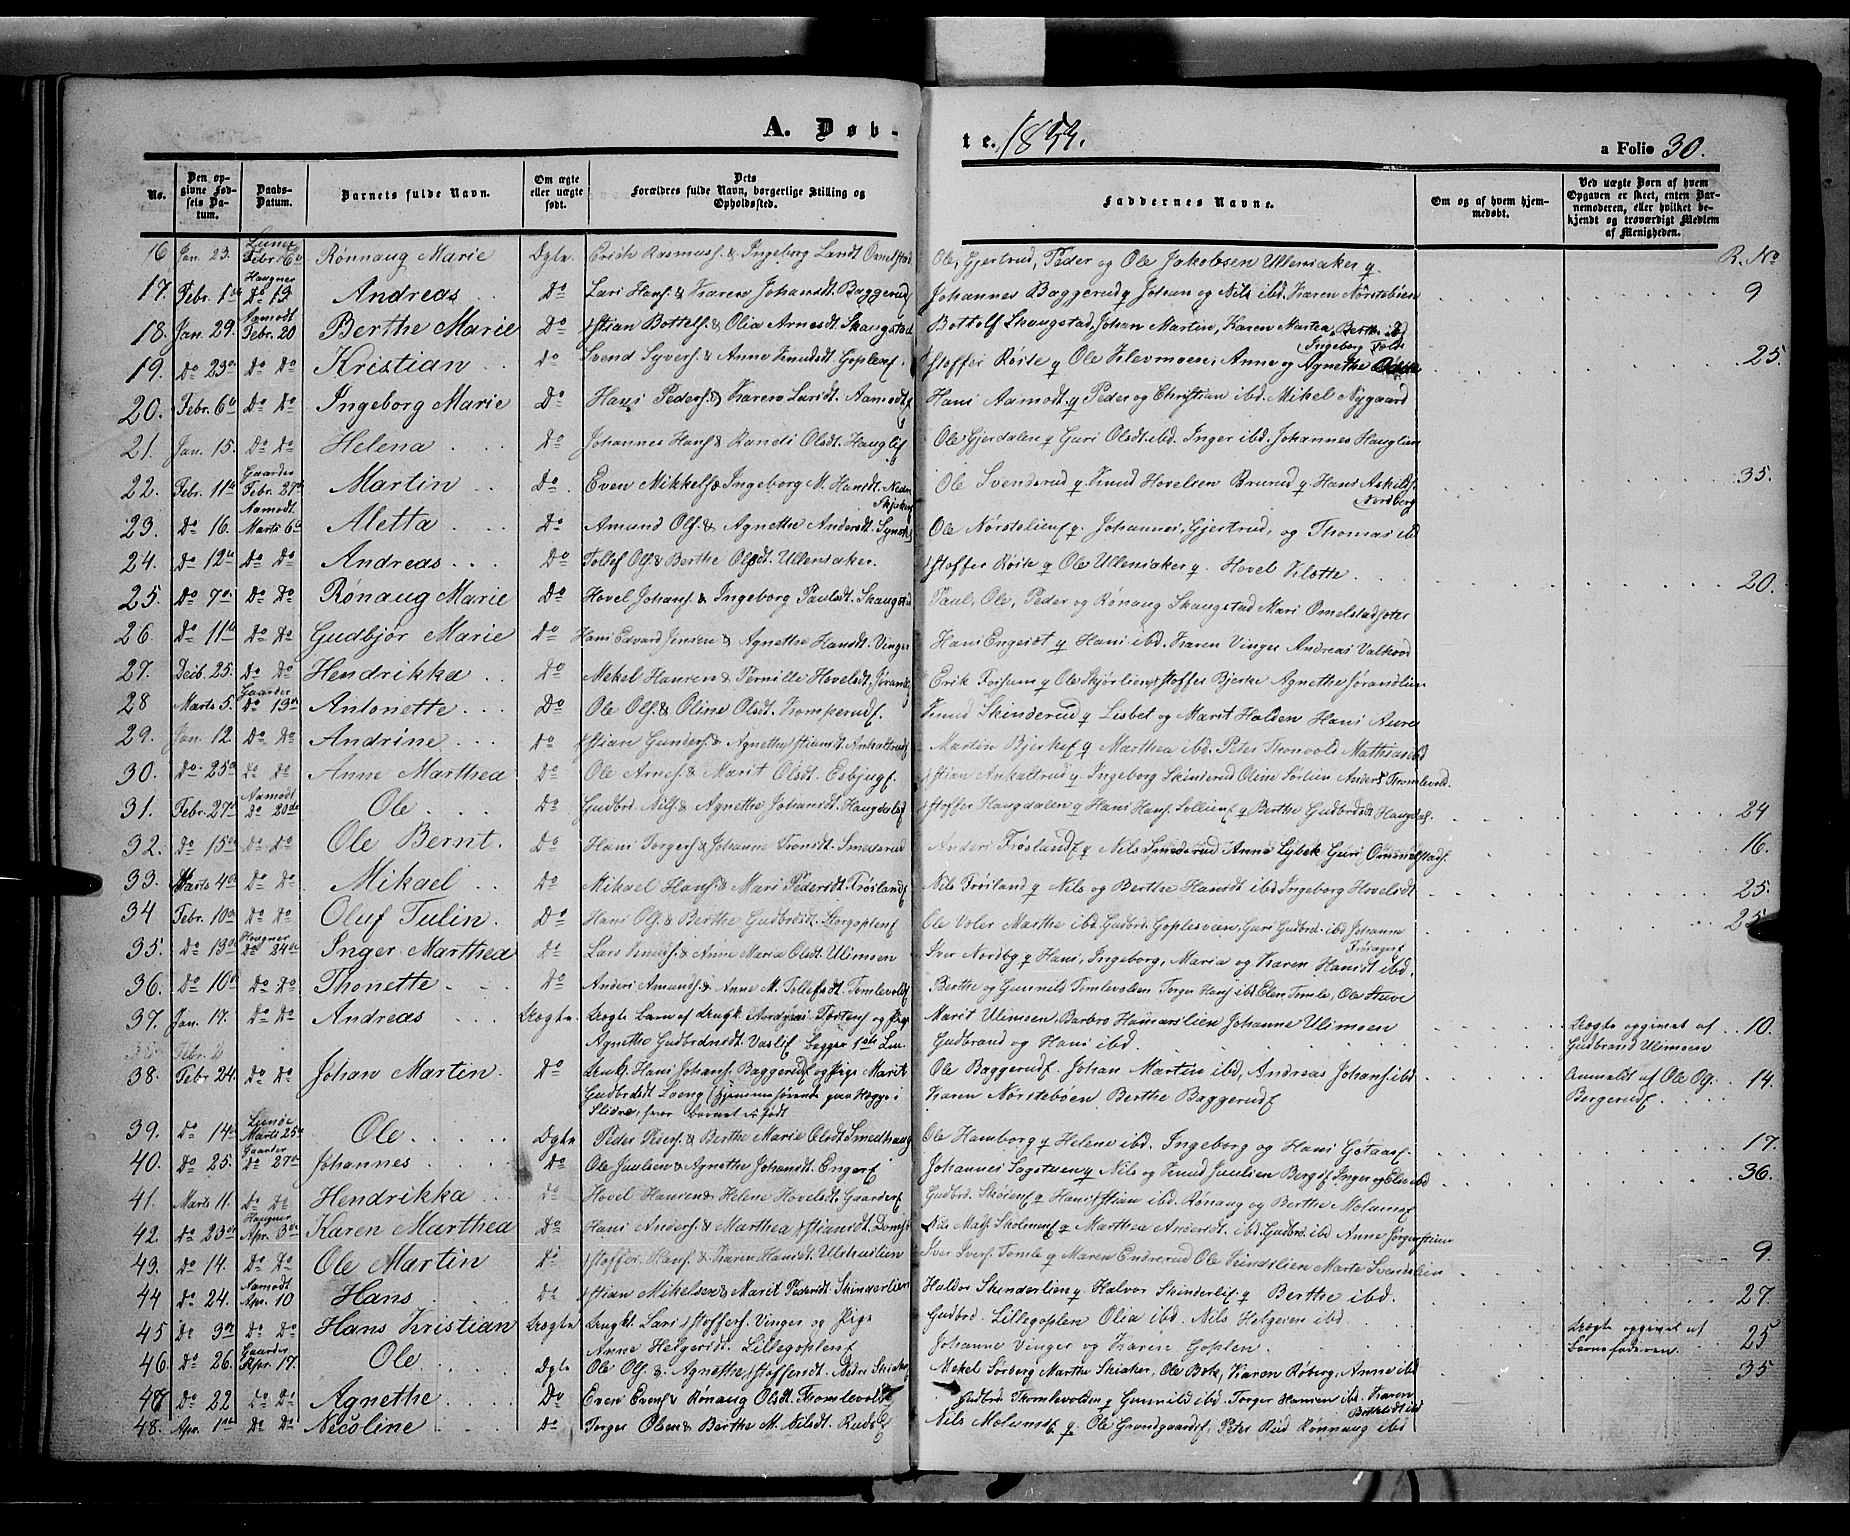 A. Døb-
te. 1853.
a Folio 30.
No.
Den opgivne Fødsels Datum.
Daabs-Datum.
Barnets fulde Navn.
Om ægte eller uægte født.
Dets Forældres fulde Navn, borgerlige Stilling og Opholdssted.
Faddernes Navne.
Om og af hvem hjemmedøbt.
Ved uægte Børn af hvem Opgaven er skeet, enten Barnemoderen, eller hvilket bekjendt og troværdigt Medlem af Menigheden.
R. No
16 Jan. 23. Lunde Febr. 6te Rønnaug Marie Ægte. Erich Rasmus. & Ingeborg Ole, Gjertrud, Peder og Ole Jakobsen Ulleniaker
17. Febr. 1ste Haugner Do 13 Andreas Do Lars Hans. & Karen Johansdt. Baggerud Johannes Baggerud Johan og Nils ibd. Karen Nørstebøen 9
18. Jan. 29. Aamodt Febr. 20 Berthe Marie Do Stian Bottolfs. & Olia Arnesdt. Skaugstad Bottolf Skaugstad, Johan Martin, Karen Martea, Berthe ibd
19. Do 23de Do Do Kristian Do Svend Syvers. & Anne Knudsdt. Goplen. Stoffer Røste Ole Klevmoen, Anne og Agnethe 25
20. Febr. 6te Do Do Ingeborg Marie Do Hans Peders. & Karen Larsdt. Aamodt Hans Aamodt Peder og Christian ibd. Mikel Nygaard
21. Jan. 15. Do Do Helena Do Johannes Hans. & Randi Olsdt. Hauglie Ole Gjerdalen Guri Olsdt. ibd. Inger ibd. Johannes Hauglien
22. Febr. 11te Gaarder Febr. 27de Martin Do. Even Mikkels. & Ingeborg M. Hansdt. Nedre Ole Svenderud Knud Hovelsen Brurud Hans Nordberg 35.
23. Do 16. Aamodt Marts 6te Aletta Do Amund Ols. & Agnethe Andersdt. Ole Nørstelien Johannes, Gjertrud, og Thomas ibd
24. Do 12te Do Do Andreas Do Tollef Ols. & Berthe Olsdt. Ulleniaker. Stoffer Røste Ole Ulleniaker Hovel Klette
25. Do 7de Do Do Rønaug Marie Do Hovel Johans. & Ingeborg Paulsdt. Skaugstad Paul, Ole, Peder og Rønaug Skaugstad Mari 20.
26. Do 11te Do Do Gudbjør Marie Do Hans Edvard Jensen & Agnethe Hansdt. Vinger Hans Engeset Hans ibd. Karen Vinger Andreas
27. Decb. 25. Do Do Hendrikka Do Mekel Hansen & Pernille Hovelsdt. Erik Forsum Ole Skjørlien Stoffer Bjerke Agnethe
28 Marts 5. Gaarder Do 13de Antonette Do Ole Ols. & Oline Olsdt. Tromperud. Knud Skinderud Lisbet og Marit Holden Hans Aure
29. Jan. 12. Do Do Andrine Do Stian Gunders. & Agnethe Stiansdt. Ankaltrud Martin Bjerke Marthea ibd. Peter Thonvold Mathias ibd
30. Do 25de Do Do Anne Marthea Do Ole Arnes. & Marit Olsdt. Esbjug. Stian Ankaltrud Ingeborg Skinderud Oline Sørlien Anders
31. Febr. 27de Aamodt Do 20de Ole Do Gudbrd. Nils. & Agnethe Johansdt. Haugdalen Stoffer Haugdalen Hans Hans. Sollien Berthe Gudbrdsdt. 24
32. Do 15de Do Do Ole Bernt. Do Hans Torgers. & Johanne Smederud Anders Frøsland Nils Smederud Anne Lybek Guri 16.
33. Marts 4de Do Do Mikael Do Mikael Hans. & Mari Pedersdt. Frøsland Nils Frøsland Nils og Berthe Hansdt ibd Ingeborg Hovelsdt 25.
34 Febr. 10de Do Do Oluf Tulin. Do Hans Ols. & Berthe Gudbrdsdt. Storgoplen Ole Voler Marthe ibd. Gudbrd. Goplesveen, Guri Gudbrd. ibd Johanne 25
35. Do 13de Haugner Do 24de Inger Marthea Do Lars & Anne Maria Olsdt. Ulimoen Iver Nordby Hans, Ingeborg, Maria og Karen Hansdt ibd.
36. Do 10de Do Do Thonette Do Anders Amunds. & Anne M. Tollefsdt. Tomlevold Berthe og Gunnild Tomlevolden Torger Hans. ibd. Elen Tomle, Ole
37. Jan. 17. Do Do Andreas Uægte. Uægte Barn af Ungk. Andreas Torsten. og Pige Agnethe Gudbrandsdt Vaslie begges 1ste Lm. Marit Ulimoen, Barbro Hamarslien Johanne Ulimoen Gudbrand og Hans ibd. Uægte opgivet af Gudbrand Ulimoen 10.
38. Febr. 24. Do Do Johan Martin. Do Ungk. Hans Johans. Baggerud og Pige Marit Gudbrdsdt Loeng (hjemmehørende paa Hegge i Slidre, hvor barnet er født Ole Baggerud Johan Martin ibd, Andreas Johans. ibd. Karen Nørstebøen Berthe Baggerud Anmeldt af Ole Og. Bergerud. 14.
39. Do 14de Lunde Marts 25de Ole Ægte Peder & Berthe Marie Olsdt. Smedhaug Ole Hamborg Helene ibd. Ingeborg og Hans 17.
40. Do 25. Gaarder Do 27de Johannes Do Ole Juulsen & Agnethe Johansdt. Enger Johannes Sagstuen Nils og Knud Juulsen Berg Inger og Else ibd 36.
41. Marts 11. Do Do Hendrikka Do Hovel Hansen & Helene Hovelsdt. Gaarder Gudbrd. Skøien Hans Stian ibd. Rønaug og Berthe Molum
42. Do 23de Haugner Apr. 3de Karen Marthea Do Hans Anders. & Marthea Stiansdt. Nils Mads. Skolmen Marthea Andersdt. ibd. Gudbrd. ibd Anne
43. Do 14. Do Do Ole Martin Do Stoffer Hans. & Karen Hansdt. Ulshuslien Iver Ivers. Tomle Maren Endrerud Ole 9.
44 Do 24. Aamodt Apr. 10 Hans Do Stian Mikelsen & Marit Pedersdt. Skinderlien Haldor Skinderlien Halvor Skinderlie Berthe ibd. 27.
45 Do 3de Do Do Hans Kristian Uægte Ungk. Lars Stoffers. Vinger og Pige Anne Helgesdt. Lillegoplen Gudbrd. Lillegoplen Olia ibd. Nils Helgesen ibd. Johanne Vinger og Karen Goplen. Uægte opgivet af Barnefaderen. 25
46. Do 26. Gaarder Apr. 17. Ole Ægte Ole Ols. & Agnethe Stoffersdt. Nedre Skiaker Mekel Sørberg Marthe Skiaker, Ole Bræk, Karen Røberg, Anne ibd 35
47 Do 22 Do Do Agnethe Do Even Evens. & Rønaug Olsdt. Thomlevold Gudbrd. Thomlevolden Gunnild ibd. Torger Hansen ibd. Karen ibd
48. Apr. 1ste Do Do Nicoline Do Torger Olsen & Berthe M. Nilsdt. Rud Nils Molum Ole Grondgaard, Peter Rud Rønnaug ibd